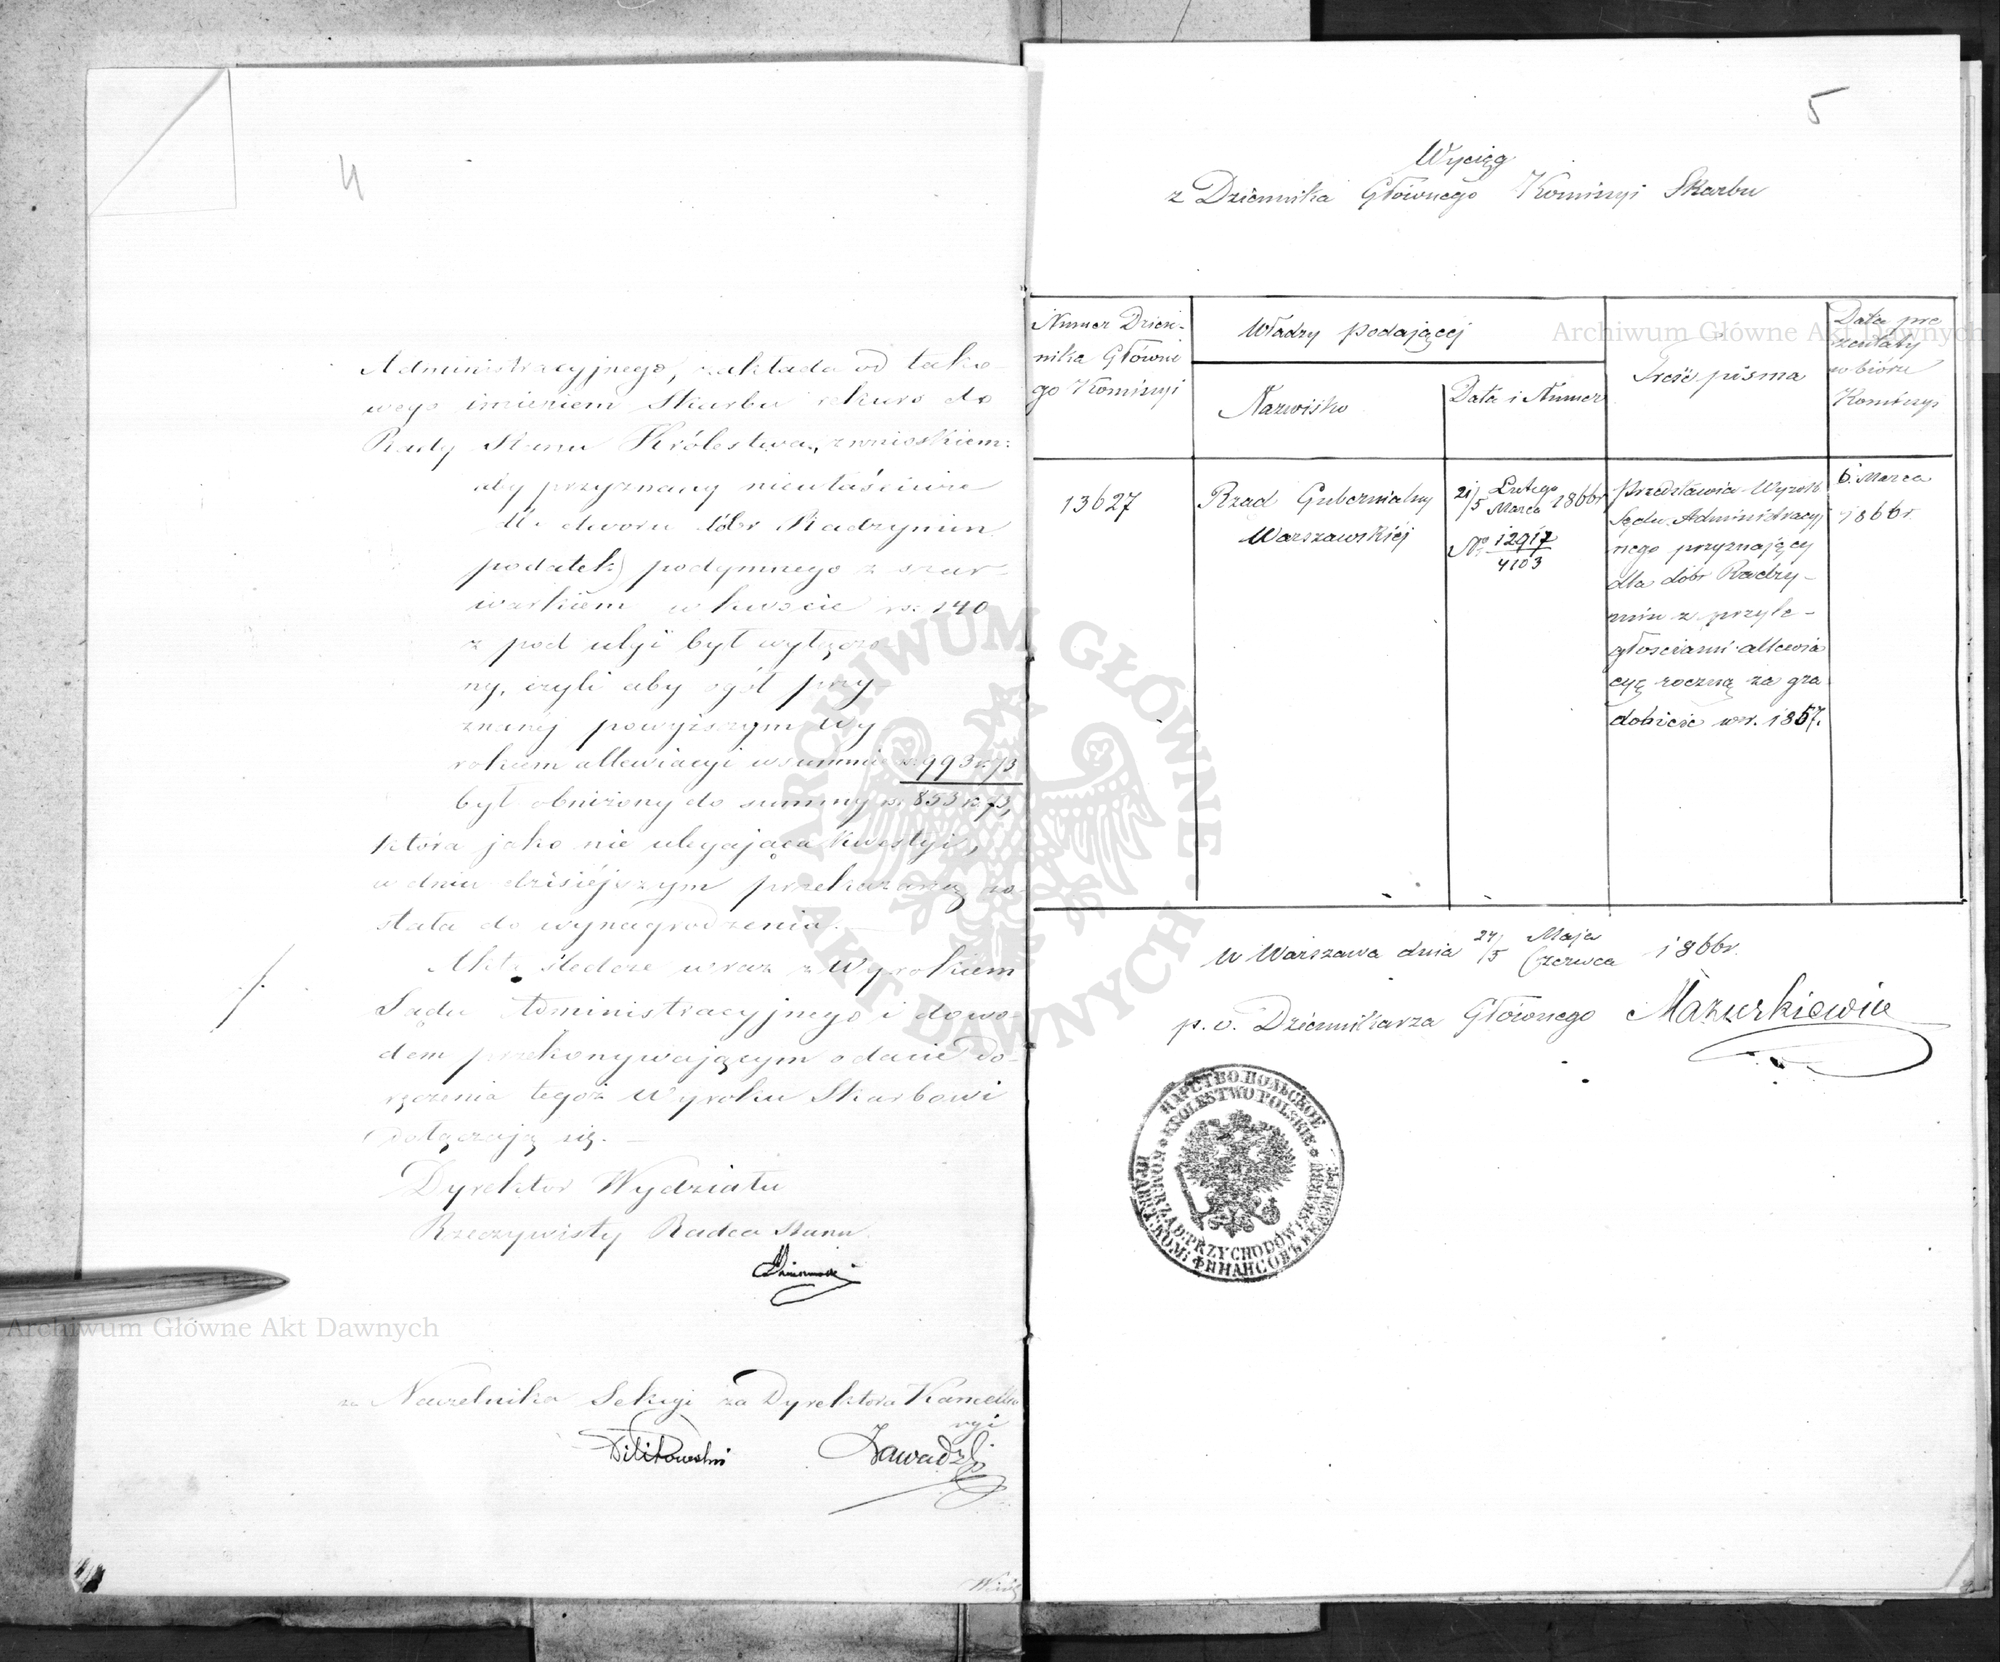 4
Administracyjnego, zakłada od tako-
wego imieniem Skarbu rekurs do
Rady Stanu Królestwa, z wnioskiem:
aby przyznany niewłaściwie
dla dworu dóbr Radzymin
podatek podymnego z szar-
warkiem w kwocie rs. 140
z pod ulgi był wyłączo-
ny, czyli aby ogół przy-
znanej powyższym Wy
rokiem allewiacyi w summie rs. 993 k. 73
był obniżony do summy rs. 853 k. 73,
która jako nie ulegająca kwestyi,
w dniu dzisiejszym przekazaną zo
stała do wynagrodzenia. —
Akta śledcze wraz z Wyrokiem
Sądu Administracyjnego i dowo-
dem przekonywającym o dacie do-
ręczenia tegoż Wyroku Skarbowi
dołączają się. —
Dyrektor Wydziału
Rzeczywisty Radca Stanu
za Naczelnika Sekcyi za Dyrektora Kancella
ryi
Zawadzki
5
Wyciąg
z Dziennika Głównego Kommissyi Skarbu
Numer Dzien-
nika Główne
go Kommissyi
Władzy podającej
Nazwisko
Data i Numer
Treść pisma
Data pre
zentaty
w biórze
Kommissyi
13627
Rząd Gubernialny
Warszawskiéj
21/5 Lutego Marca 1866r
No 12917/4103
Przedstawia Wyrok
Sądu Administracyj
nego przyznający
dla dóbr Radzy-
min z przyle-
głościami allewia
cyę roczną za gra
dobicie w r. 1857.
6 Marca
1866r.
w Warszawa dnia 24/5 Maja Czerwca 1866r.
p. o. Dziennikarza Głównego Mazurkiewicz
ЦАРСТВО ПОЛЬСКОЕ
KRÓLESTWO POLSKIE
KOM: RZĄD: PRZYCHODÓW I SKARBU
ПРАВИТ. КОМ: ФИНАНСОВЪ И КАЗНАЧ:
ARCHIWUM GŁÓWNE AKT DAWNYCH
Archiwum Główne Akt Dawnych
Archiwum Główne Akt Dawnych